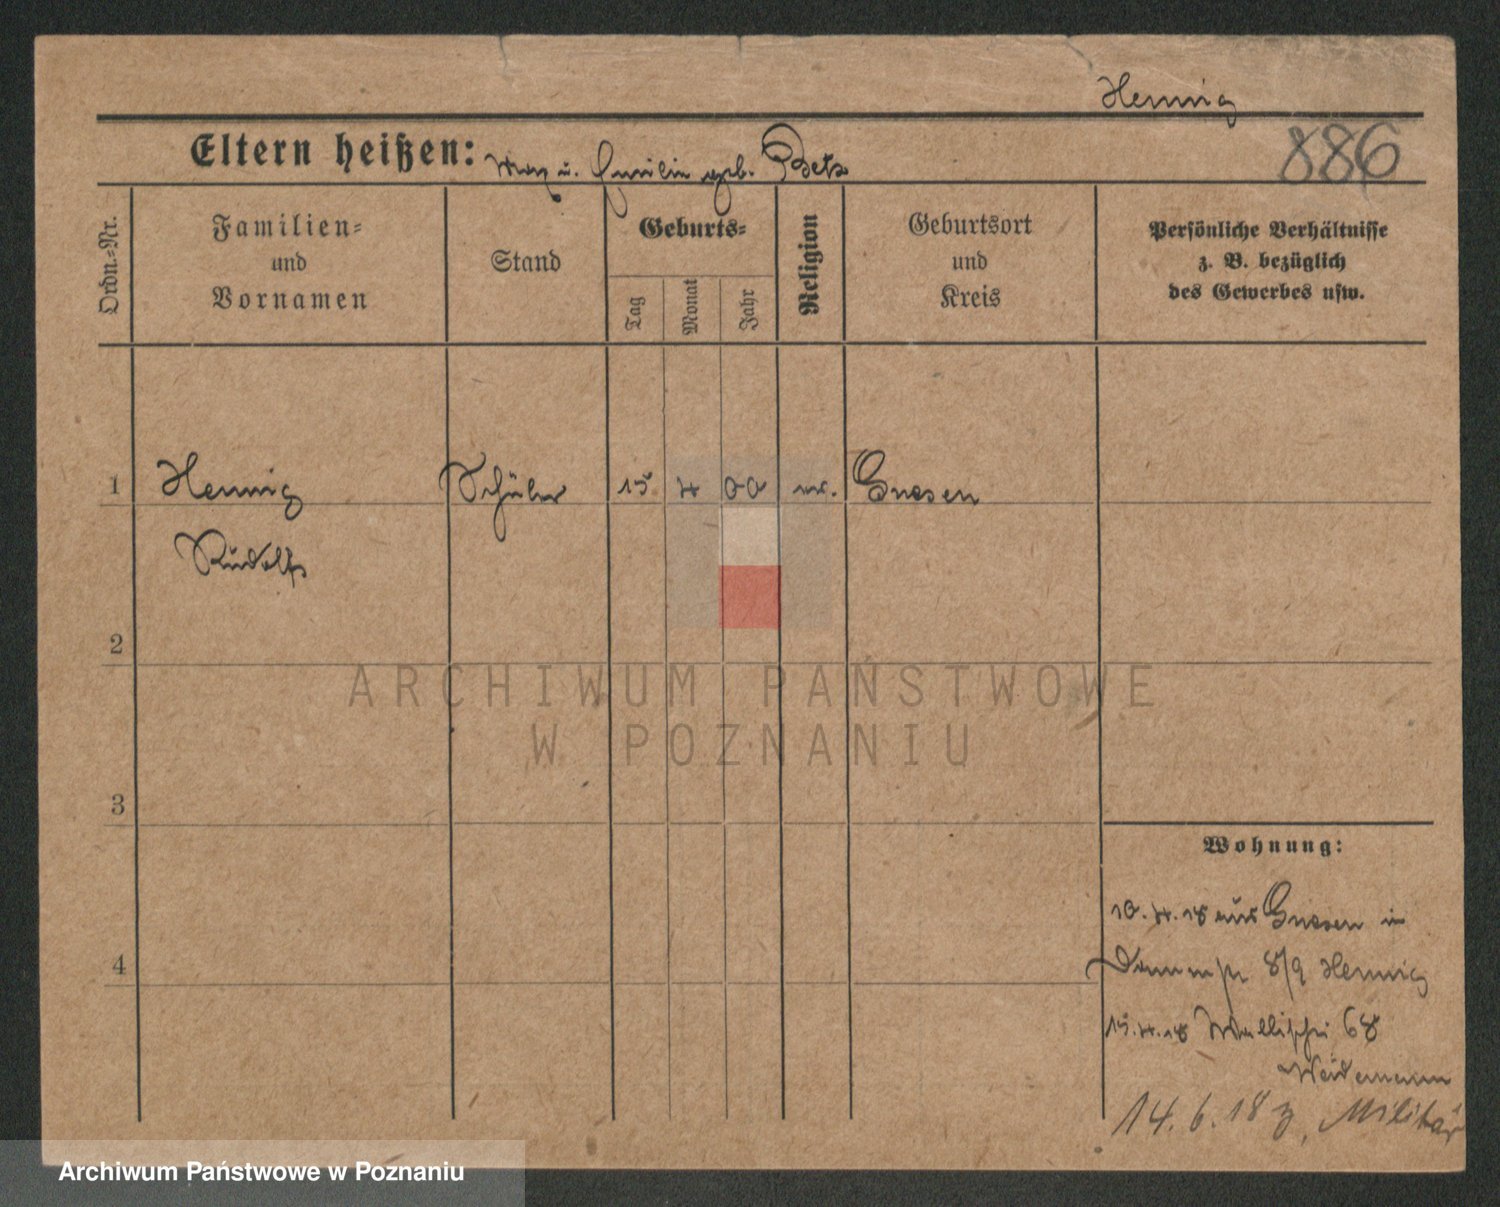 Hennig
886
Eltern heißen: Max u. Emilie geb. Betz
Ordn.-Nr.
Familien-
und
Vornamen
Stand
Geburts-
Tag
Monat
Jahr
Religion
Geburtsort
und
Kreis
Persönliche Verhältnisse
z. B. bezüglich
des Gewerbes usw.
1 Hennig Schüler 15 4 00 ev. Gnesen
Rudolf
2
3
4
Wohnung:
10.4.18 aus Gnesen in
8/9 Hennig
15.4.18 Wallischei 68
Weidemann
14.6.18 z. Militär
ARCHIWUM PAŃSTWOWE
W POZNANIU
Archiwum Państwowe w Poznaniu